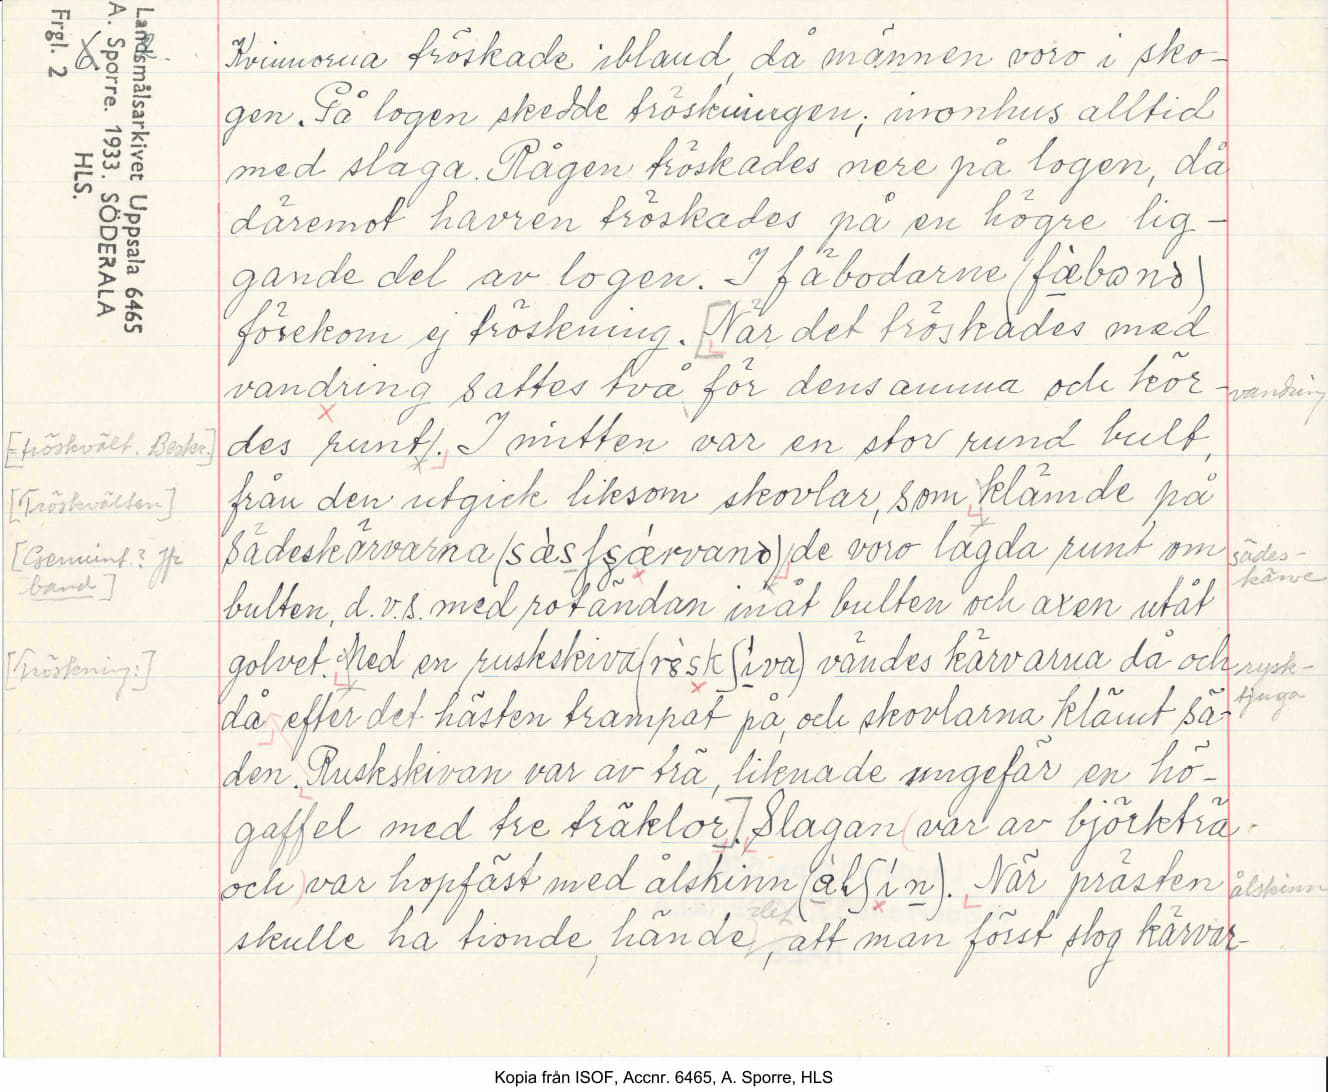 Landsmålsarkivet Uppsala 6465
A. Sporre. 1933. SÖDERALA
HLS.
Frgl. 2
Kvinnorna tröskade ibland, då männen voro i sko-
gen. På logen skedde tröskningen, inonhus alltid
med slaga. Rågen tröskades nere på logen, då
däremot havren tröskades på en högre lig-
gande del av logen. I fäbodarne (fæ̀bonə)
förekom ej tröskning. [När det tröskades med
vandring sattes två för densamma och kör-
vandring
[=tröskvält. Beskr.]
des runt). I mitten var en stor rund bult,
från den utgick liksom skovlar, som klämde på
[Tröskvälten]
sädeskärvarna de voro lagda runt om
sädes-
kärve
[Gemint.? Jfr
band]
bulten, d.v.s. med rotändan inåt bulten och axen utåt
golvet. Med en ruskskiva vändes kärvarna då och
rysk-
tjuga
[Tröskning:]
då efter det hästen trampat på, och skovlarna klämt sä-
den. Ruskskivan var av trä, liknade ungefär en hö-
gaffel med tre träklor]. Slagan (var av björkträ
och) var hopfäst med ålskinn. När prästen
ålskinn
skulle ha tionde, hände det, att man först slog kärvar-
Kopia från ISOF, Accnr. 6465, A. Sporre, HLS